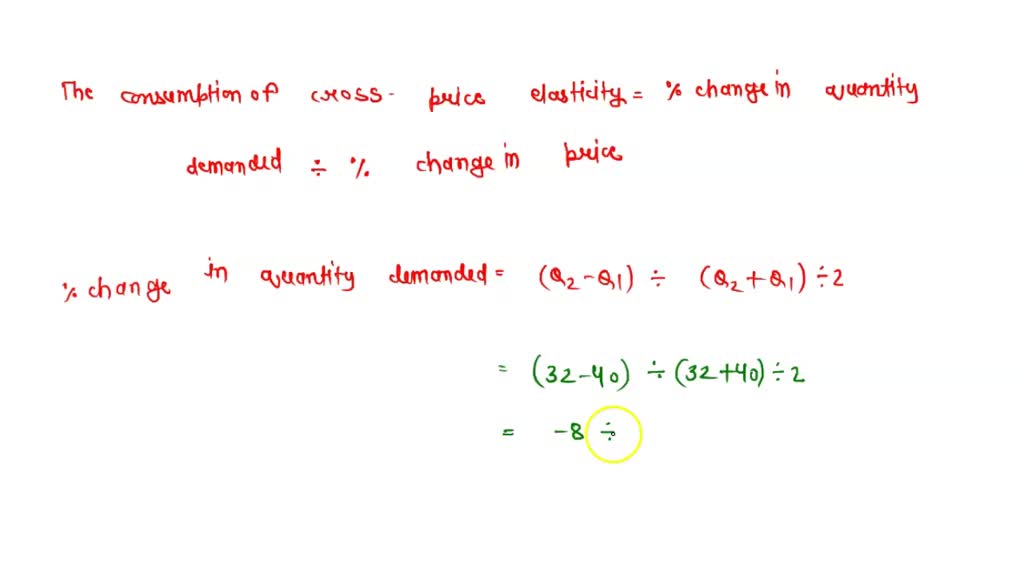 The consumption of cross- price elasticity = % change in quantity
demanded ÷ % change in price
% change in quantity demanded = (Q2 - Q1) ÷ (Q2 + Q1) ÷ 2
= (32-40) ÷ (32+40) ÷ 2
= -8 ÷